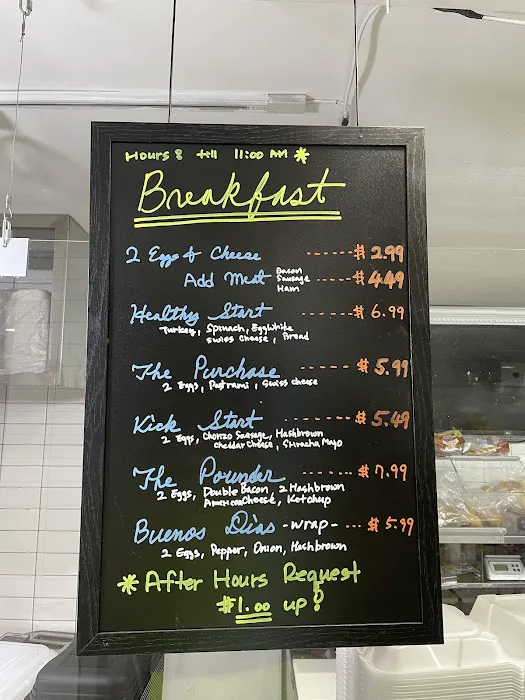 Hours: till 11:00 AM *
Breakfast
2 Eggs & Cheese ------ $ 2.99
Add Meat Bacon Sausage Ham ------ $ 4.49
Healthy Start ------ $ 6.99
Turkey, Spinach, Eggwhite
Swiss Cheese, Bread
The Purchase ------ $ 5.99
2 Eggs, Pastrami, Swiss cheese
Kick Start ------ $ 5.49
2 Eggs, Chorizo Sausage, Hashbrown
Cheddar Cheese, Sriracha Mayo
The Pounder ------ $ 7.99
2 Eggs, Double Bacon, 2 Hashbrown
American Cheese, Ketchup
Buenos Dias -wrap- --- $ 5.99
2 Eggs, Pepper, Onion, Hashbrown
* After Hours Request
$1.00 up!